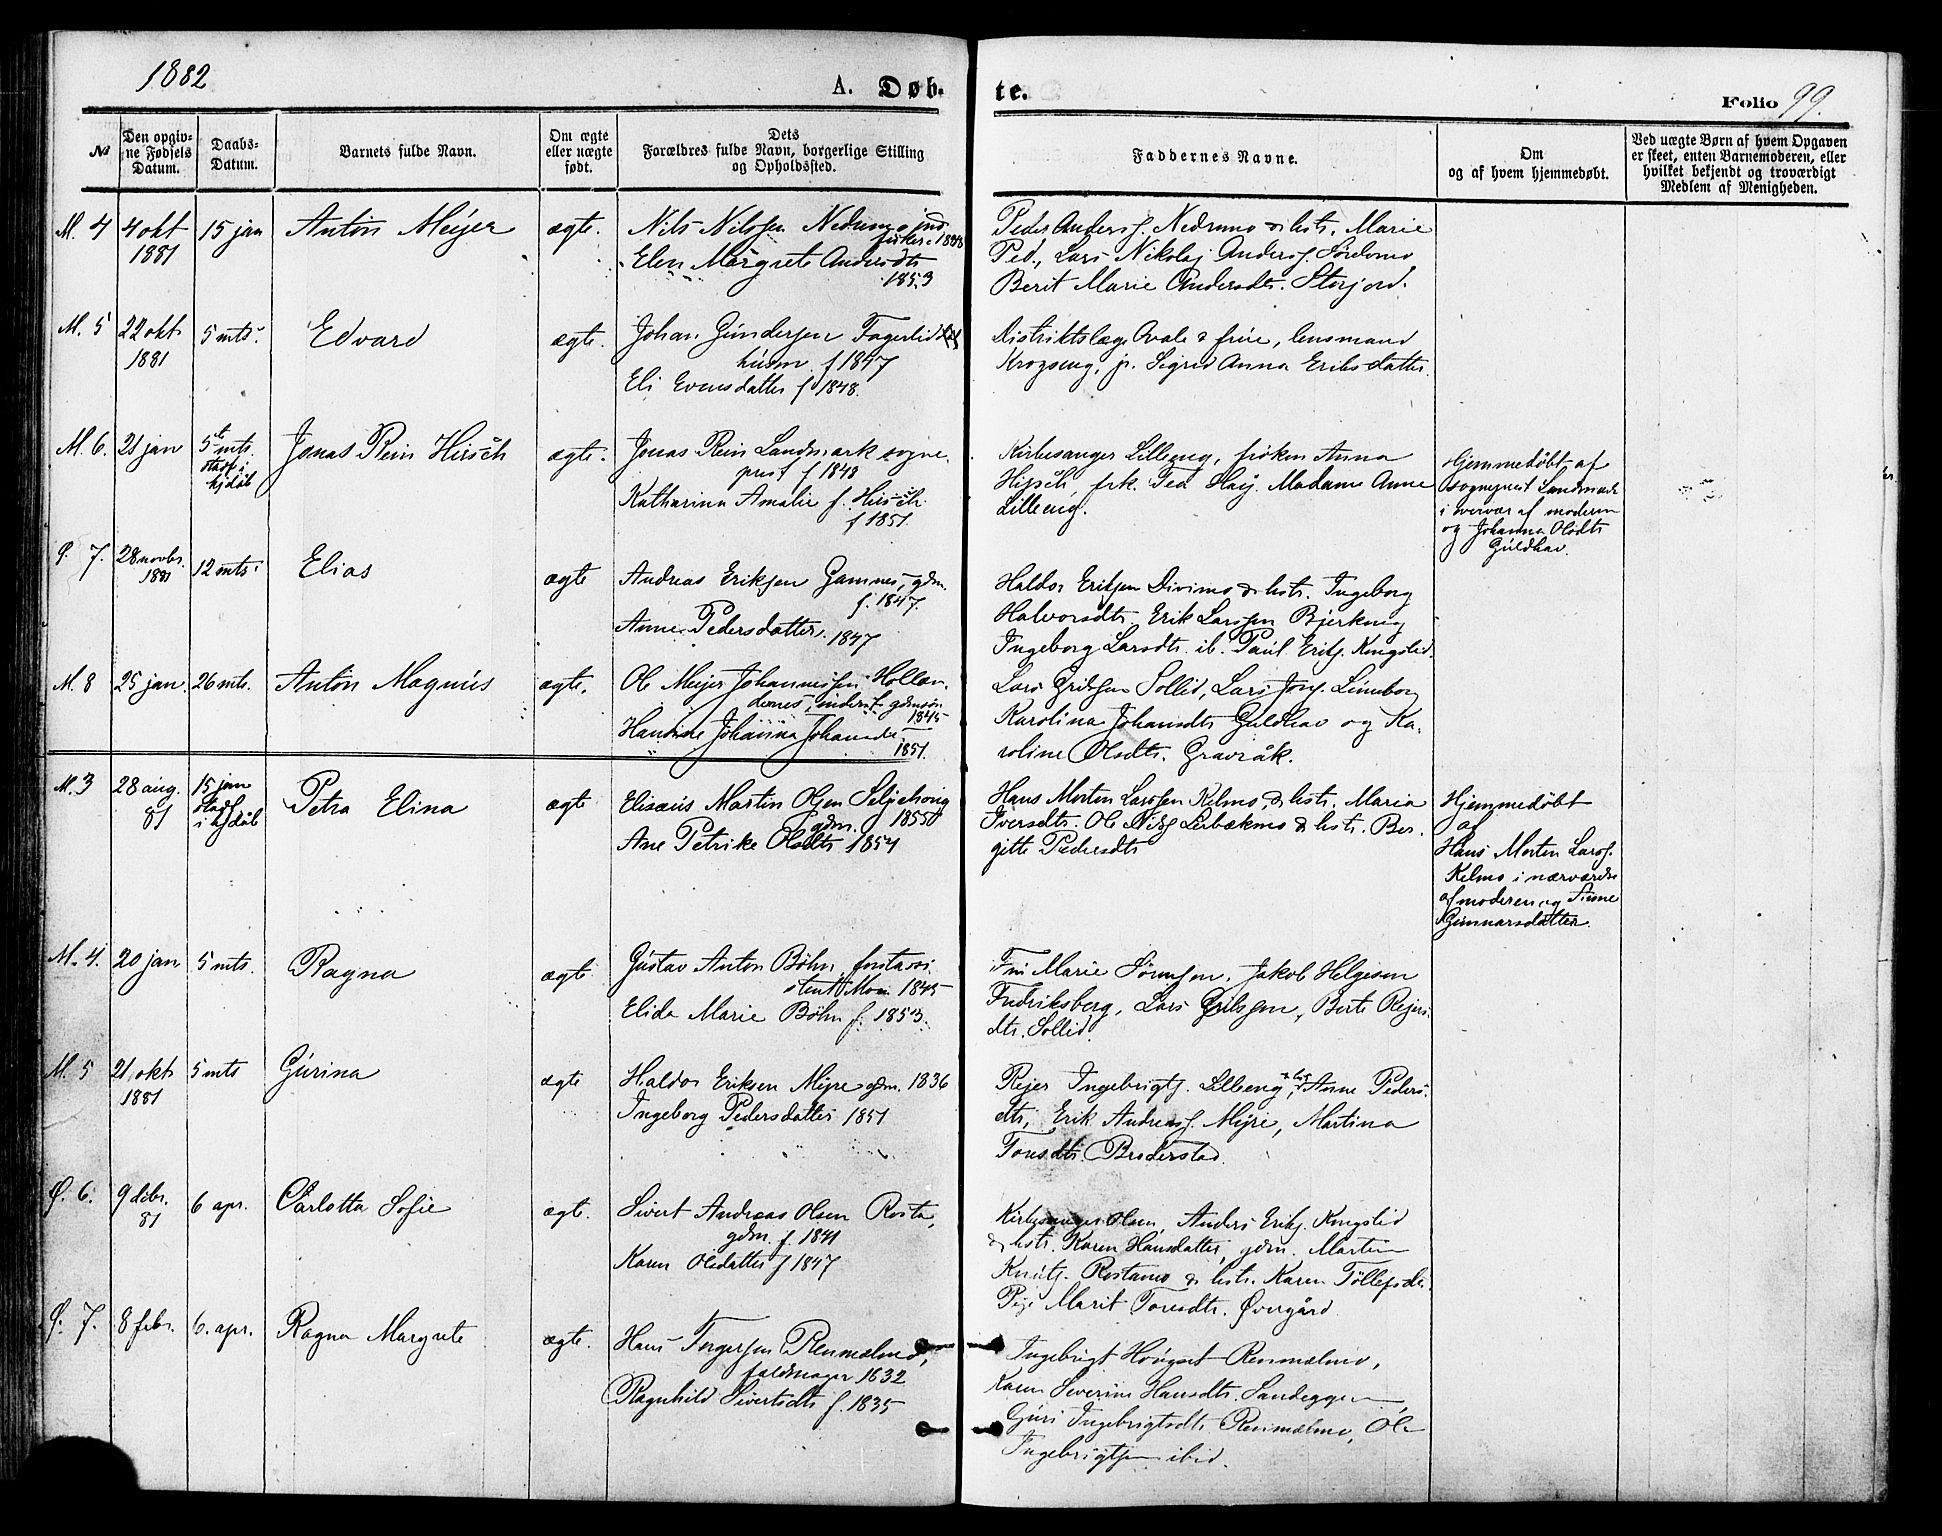 1882
A. Døb-
te.
Folio 99.
No
Den opgiv-
ne Fødsels
Datum.
Daabs-
Datum.
Barnets fulde Navn.
Om ægte
eller uægte
født.
Dets
Forældres fulde Navn, borgerlige Stilling
og Opholdssted.
Faddernes Navne.
Om
og af hvem hjemmedøbt.
Ved uægte Børn af hvem Opgaven
er skeet, enten Barnemoderen, eller
hvilket bekjendt og troværdigt
Medlem af Menigheden.
M. 4 4 okt 1881 15 jan Anton Meijer ægte.
Nils Nilssen Nedrumo
Elen Margrete Andersdtr
1853
Peder Anders. Nedrumo & hstr. Marie
Ped., Lars Nikolaj Anders. Sørdomo
Berit Marie Andersdtr. Storjord.
M. 5 22 okt 1881 5 mts. Edvard ægte.
Johan Gundersen Fagerlid
husm. f 1847
Eli Evensdatter f 1848.
Distriktslæge Hvale & frue, lensmand
Krogseng, jr. Sigrid Anna Eriksdatter.
M. 6. 21 jan 5te mts. stadf. i kjdøb Jonas Rein Hirsch ægte.
Jonas Rein Landmark sogne-
prest f 1848
Katharina Amalie f. Hirsch
f 1851.
Kirkesanger Lilleeng, frøken Anna
Hirsch, frk. Tea Høij. Madame Anne
Lilleeng.
Hjemmedøbt af
sogneprest Landmark
i overvær af moderen
og Johanna Olsdtr
Guldhav.
Ø. 7. 28 novbr. 1881 12 mts. Elias ægte
Andreas Eriksen Gamnes, gdm.
f. 1847.
Anne Pedersdatter. 1847
Haldor Eriksen Divimo & hstr. Ingeborg
Halvorsdtr. Erik Larssen Bjerkeng
Ingeborg Larsdtr. ib. Paul Eriks. Kongslid.
M. 8 25 jan. 26 mts. Anton Magnus ægte.
Ol Meijer Johannessen Hollæn-
dernes, inderst, gdmsøn
1845
Hansine Johanna Johansdtr
1851.
Lars Eriksen Sollid, Lars Jørg. Luneborg
Karolina Johansdtr Guldhav og Ka-
roline Olsdtr. Gravråk.
M. 3 28 aug. 81 15 jan stadf. i kjdøb Petra Elina ægte
Elisæus Martin Olsen Seljehoug
gdm. 1855
Ane Petrike Olsdtr 1854
Hans Morten Larssen Kelmo, & hstr. Maria
Iversdtr. Ole Nils. Leirbækmo & hstr. Ber-
gitte Pedersdtr
Hjemmedøbt
af
Hans Morten Lars.
Kelmo i nærværelse
af moderen og Anne
Gunnarsdatter.
M. 4. 20 jan 5 mts. Ragna ægte
Gustav Anton Bøhn, forstassi-
stent Moen 1845
Elida Marie Bøhn f. 1853.
Fru Marie Sørensen. Jakob Helgesen
Fredriksberg, Lars Eriksen, Berte Reijers-
dtr. Sollid.
M. 5 21 okt 1881 5 mts Gurina ægte
Haldor Eriksen Mijre gdm. 1836
Ingeborg Pedersdatter 1851
Reijer Ingebrigts. Lilleeng & hstr Anne Peders-
dtr, Erik Andreas. Mijre, Martina
Tomsdtr. Broderstad.
Ø. 6. 9 debr. 81 6 apr. Carlotta Sofie ægte.
Sivert Andreas Olsen Rosta,
gdm. f. 1841
Karen Olsdatter f 1847
Kirkesanger Olsen, Anders Eriks. Kongslid
& hstr. Karen Hansdatter, gdm. Martin
Knuts. Rostamo & hstr. Karen Tollefsdtr.
Pige Marit Toresdtr. Øvergård
Ø. 7. 8 febr. 6. apr. Ragna Margrete ægte.
Hans Torgersen Renmælmo,
faldmager 1832
Ragnhild Sivertsdtr f. 1835
Ingebrigt Hougset Renmælmo,
Karen Severine Hansdtr. Sandeggen
Guri Ingebrigtsdtr. Renmælmo, Ole
Ingebrigtsen ibid.